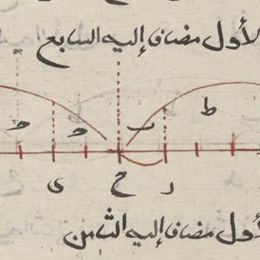 الأول مضاف إليه السابع
ط
ى ح ر
الأول مضاف إليه الثامن